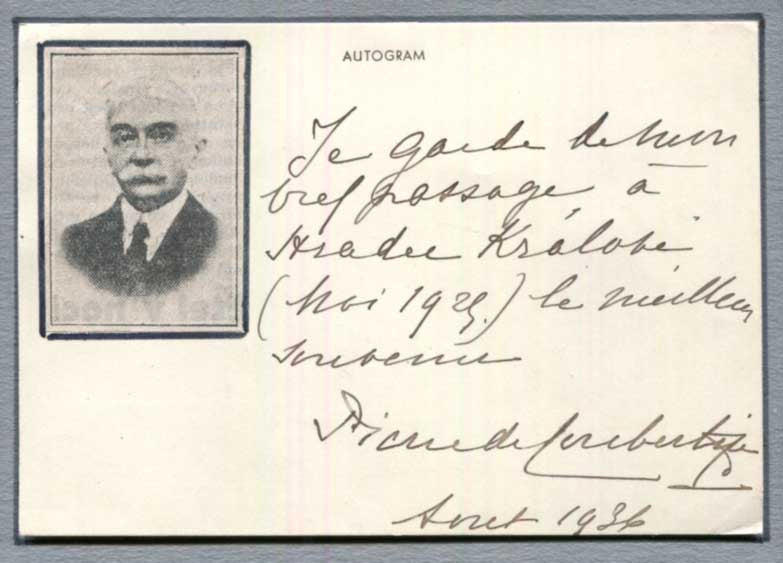 AUTOGRAM
Je garde de mon
bref passage à
Hradec Králové
(Mai 1925.) le meilleur
souvenir
Pierre de Coubertin
Août 1936